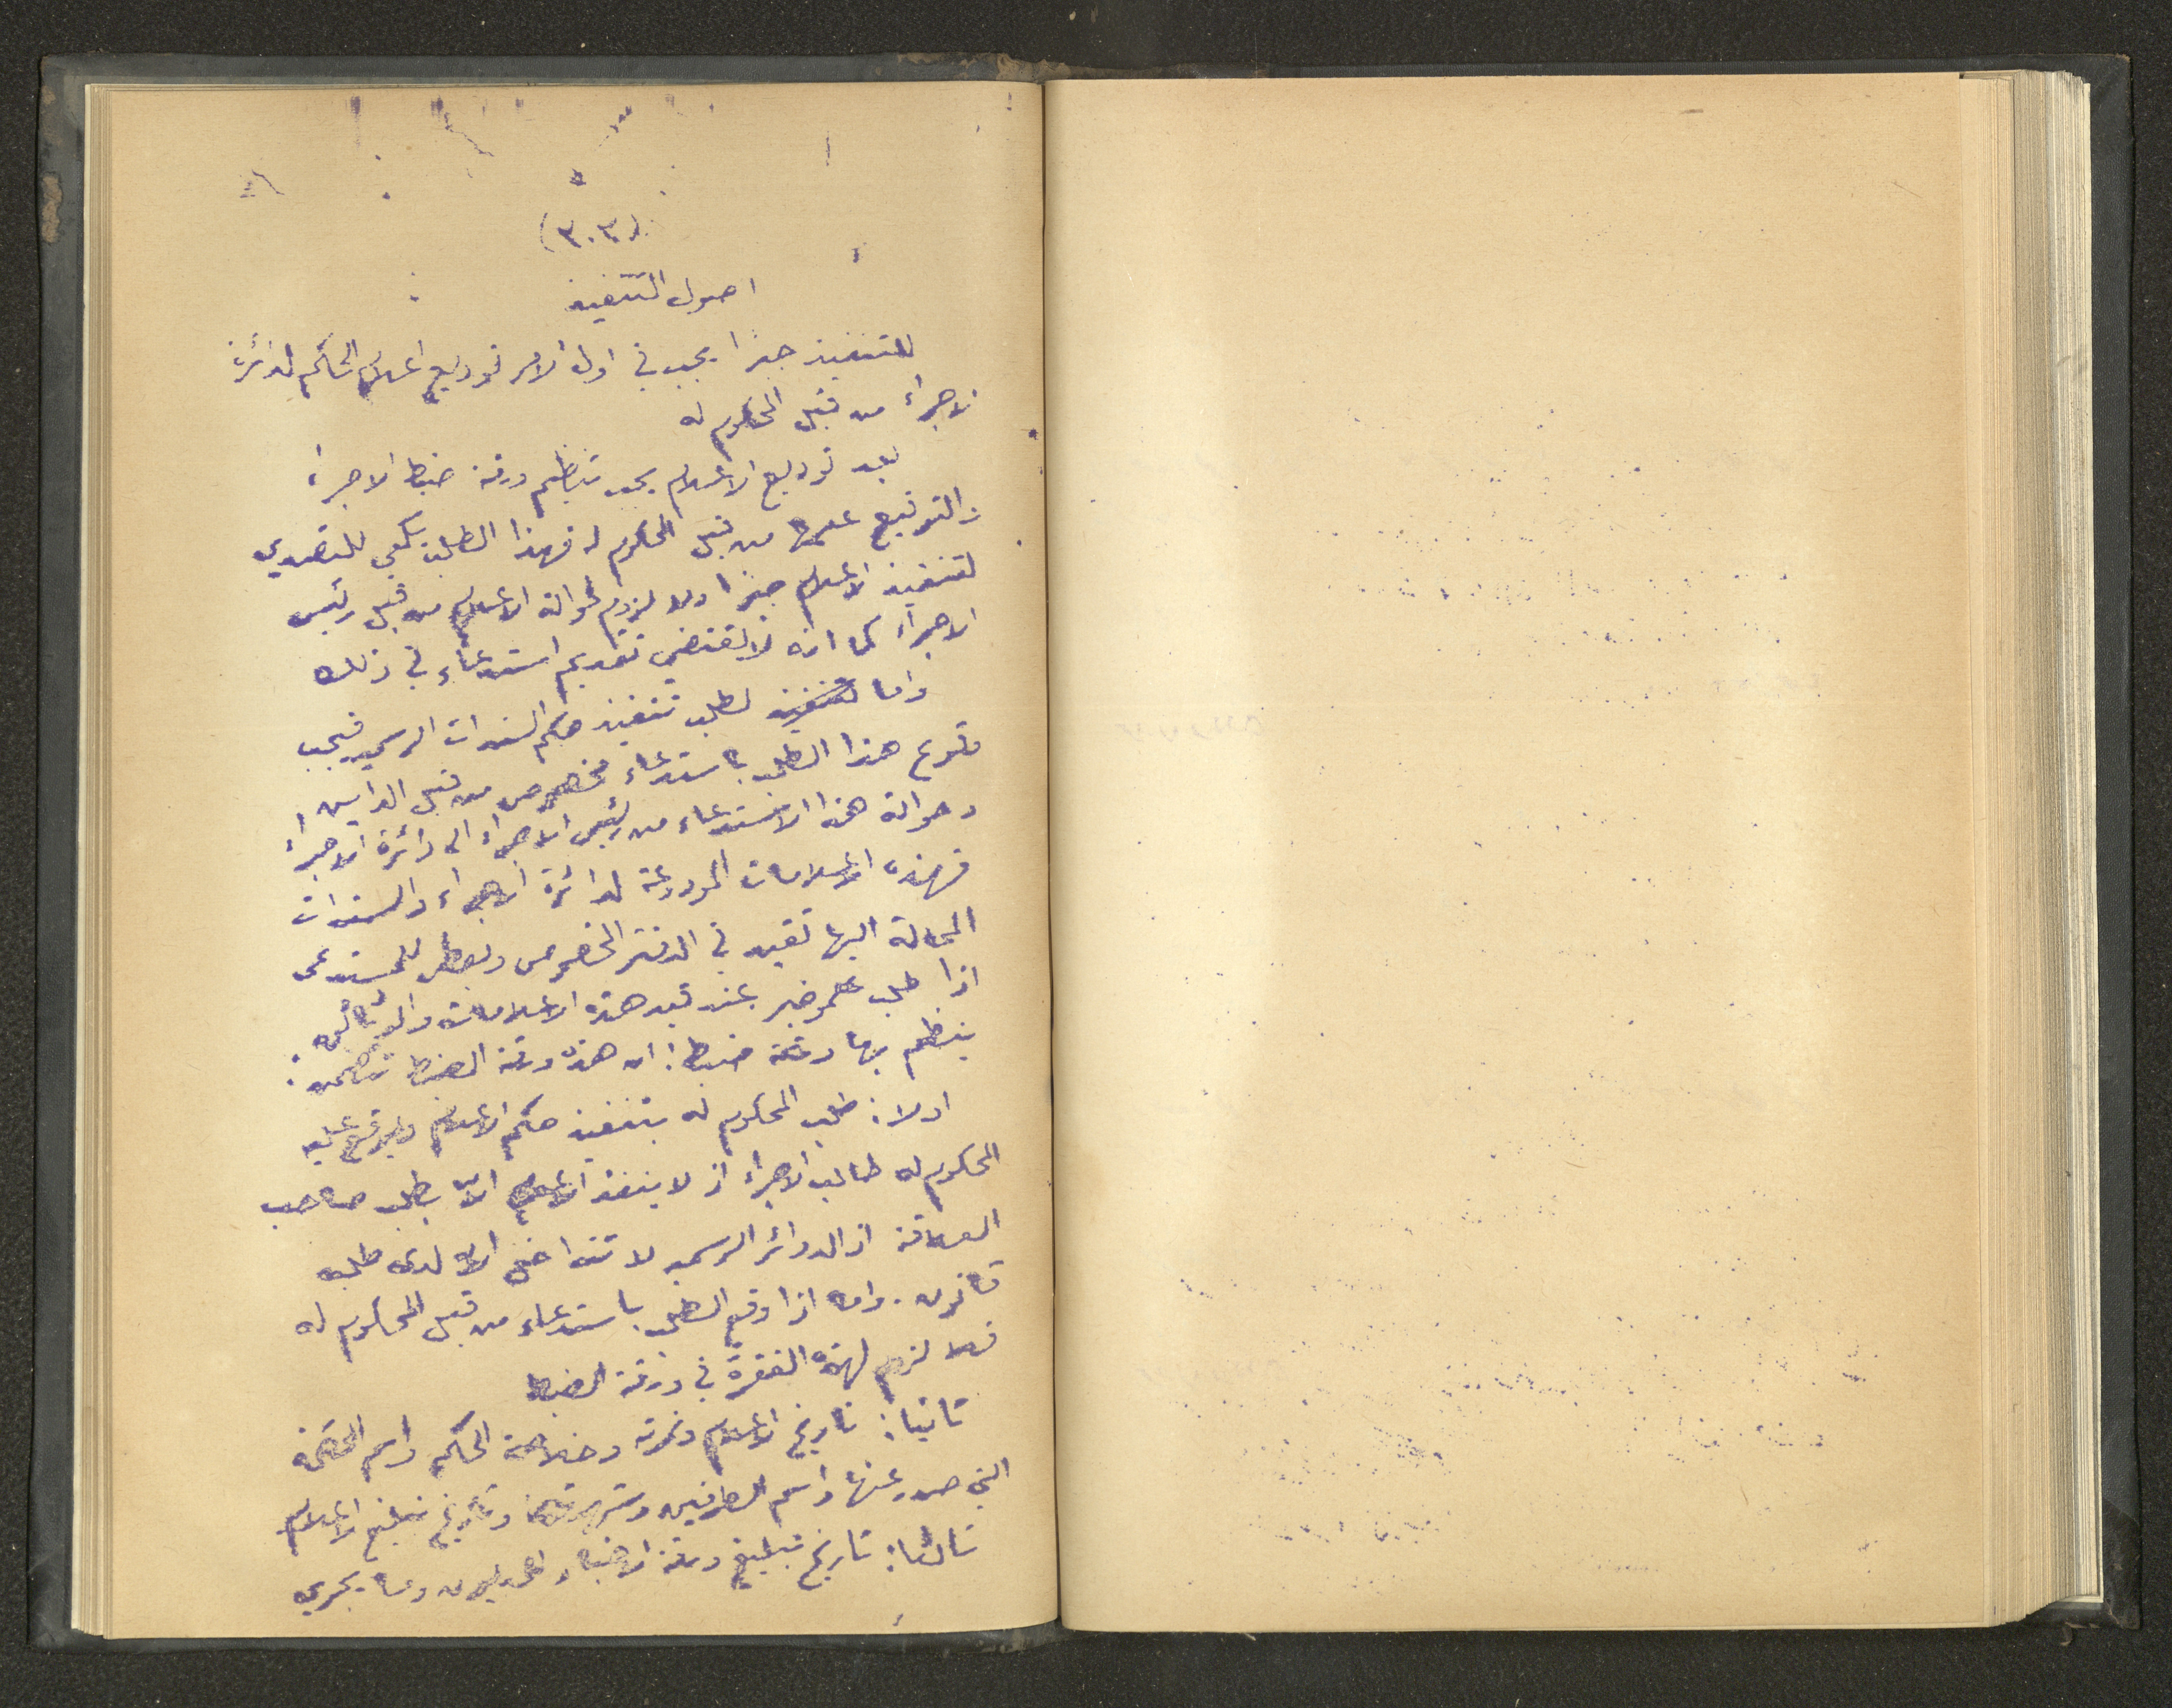 (٣٠٣)
اصول التنفيذ
للتنفيذ جبراً يجب في اول الامر توديع اعلام الحكم لدائرة
الاجراء من قبل المحكوم له
بعد توديع الاعلام يجب تنظيم ورقة ضبط الاجراء
والتوقيع عليها من قبل المحكوم له فهذا الطلب يكفي للتصدي
لتنفيذ الاعلام جبرا ولا لزوم لحوالة الاعلام من قبل رئيس
الاجراء كما انه لا يقتضي تقديم استدعاء في ذلك
واما لطلب تنفيذ حكم السندات الرسمية فيجب
وقوع هذا الطلب باستدعاء مخصوص من قبل الداين
وحوالة هذا الاستدعاء من رئيس الاجراء الى دائرة الاجراء
فهذه الاعلامات المودوعة لدائرة الاجراء والسندات
المحالة اليها تقيد في الدفتر المخصوص ويعطى للمستدعى
اذا طلب علم وخبر عند قيد هذه الاعلامات والوثائق
ينظم بها ورقة ضبط: ان هذه ورقة الضبط تتضمن:
اولا: طلب المحكوم له بتنفيذ حكم الاعلام ويوقع عليه
المحكوم له طالب الاجراء اذ لا ينفذ الاعلام الا بطلب صاحب
العلاقة اذ الدوائر الرسمية لا الا لدى طلب
قانون. واما اذا وقع الطلب باستدعاء من قبل المحكوم له
فلا لزوم لهذه الفقرة في ورقة الضبط
ثانيا: تاريخ الاعلام ونمرته وخلاصة الحكم واسم المحكمة
التي صدر عنها واسم الطرفين وشهرتهما وتاريخ تبليغ الاعلام
ثالثا: تاريخ تبليغ ورقة الاخبار المديون وما يجري